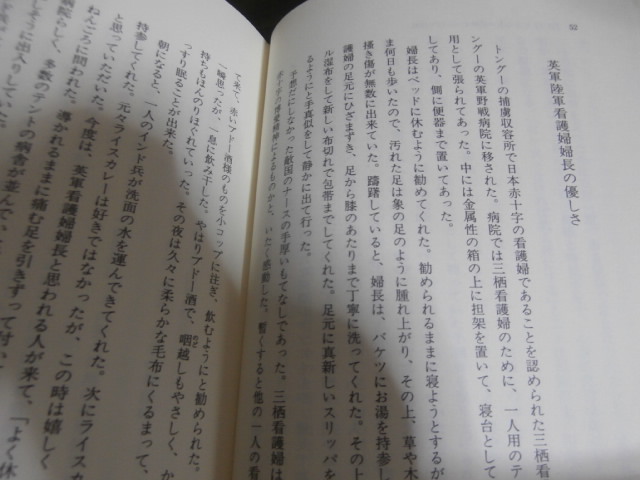 92
英軍陸軍看護婦婦長の優しさ
トングーの捕虜収容所で日本赤十字の看護婦であることを認められた三栖看
ングーの英軍野戦病院に移された。病院では三栖看護婦のために、一人用のテ
用として張られてあった。中には金属性の箱の上に担架を置いて、寝台として
してあり、側に便器まで置いてあった。
婦長はベッドに休むように勧めてくれた。勧められるままに寝ようとするが
ま何日も歩いたので、汚れた足は象の足のように腫れ上がり、その上、草や木
掻き傷が無数に出来ていた。躊躇していると、婦長は、バケツにお湯を持参し
護婦の足元にひざまずき、足から膝のあたりまで丁寧に洗ってくれた。その上
ル湿布をして新しい布切れで包帯までしてくれた。足元に真新しいスリッパを
るようにと手真似をして静かに出て行った。
予想だにしなかった敵国のナースの手厚いもてなしであった。三栖看護婦は
十字の博愛精神によるものかと、いたく感動した。暫くすると他の一人の看
て来て、赤いブドー酒様のものを小コップに注ぎ、飲むようにと勧められた。
一瞬思ったが、一息に飲み干した。やはりブドー酒で、咽越しもやさしく、か
持ちもほんのりほぐれていった。その夜は久々に柔らかな毛布にくるまって、
っすり眠ることが出来た。
朝になると、一人のインド兵が洗面の水を運んできてくれた。次にライスカ
持参してくれた。元々ライスカレーは好きではなかったが、この時は嬉しく
と思っていただいた。今度は、英軍看護婦婦長と思われる人が来て、「よく休
ねんごろに問われた。導かれるままに痛む足を引きずって付い
らしく、多数のテントの病舎が並んでい
しく出入りしていた